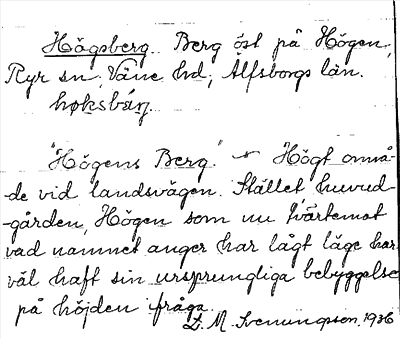 Högsberg. Berg öst på Högen,
Ryr sn, Väne hd, Älfsborgs län.
høksbárj.
"Högens Berg." Högt områ-
de vid landsvägen. Stället huvud-
-gården, Högen som nu tvärtemot
vad namnet anger har lågt läge har
väl haft sin ursprungliga bebyggelse
på höjden fråga.
D. M. Svenungsson. 1936